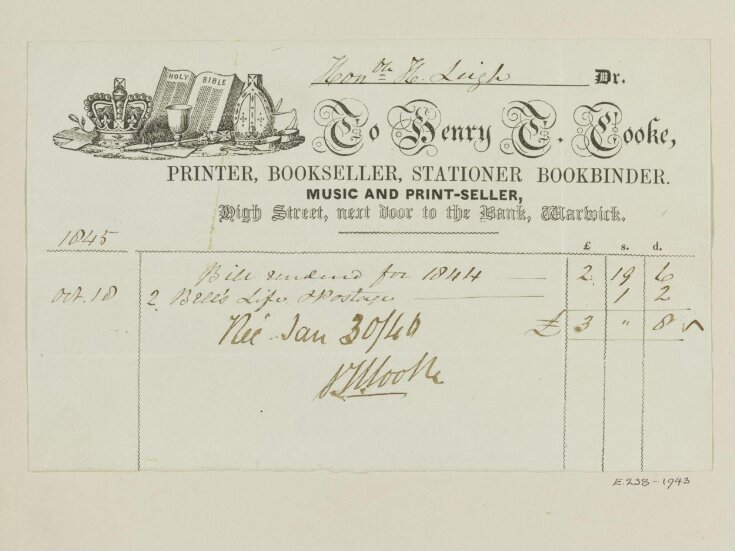 HOLY BIBLE
Honble H. Leigh Dr.
To Henry T. Cooke,
PRINTER, BOOKSELLER, STATIONER BOOKBINDER.
MUSIC AND PRINT-SELLER,
High Street, next door to the Bank, Warwick.
1845 £ s. d.
Bill rendered for 1844 2 19 6
Oct. 18 2 Bree's Life & Postage 1 2
Rec Jan 30/46 £ 3 " 8
HTCooke
E.238-1943